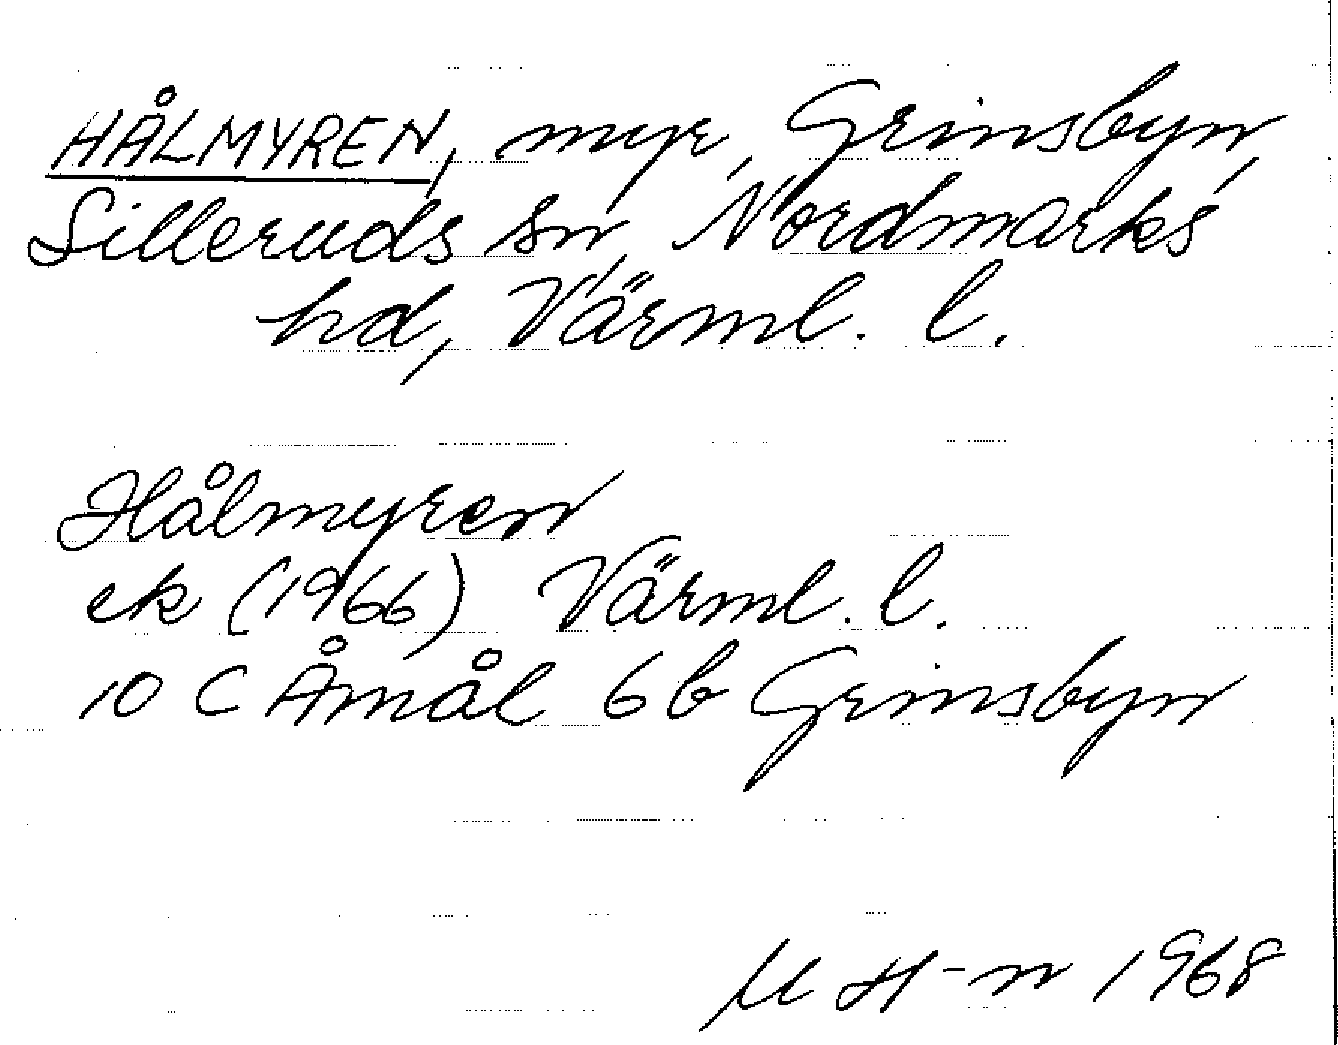 HÅLMYREN, myr, Grinsbyn,
Silleruds sn, Nordmarks
hd, Värml. l.
Hålmyren
ek (1966) Värml. l.
10 C Åmål 6 b Grinsbyn
H-n 1968